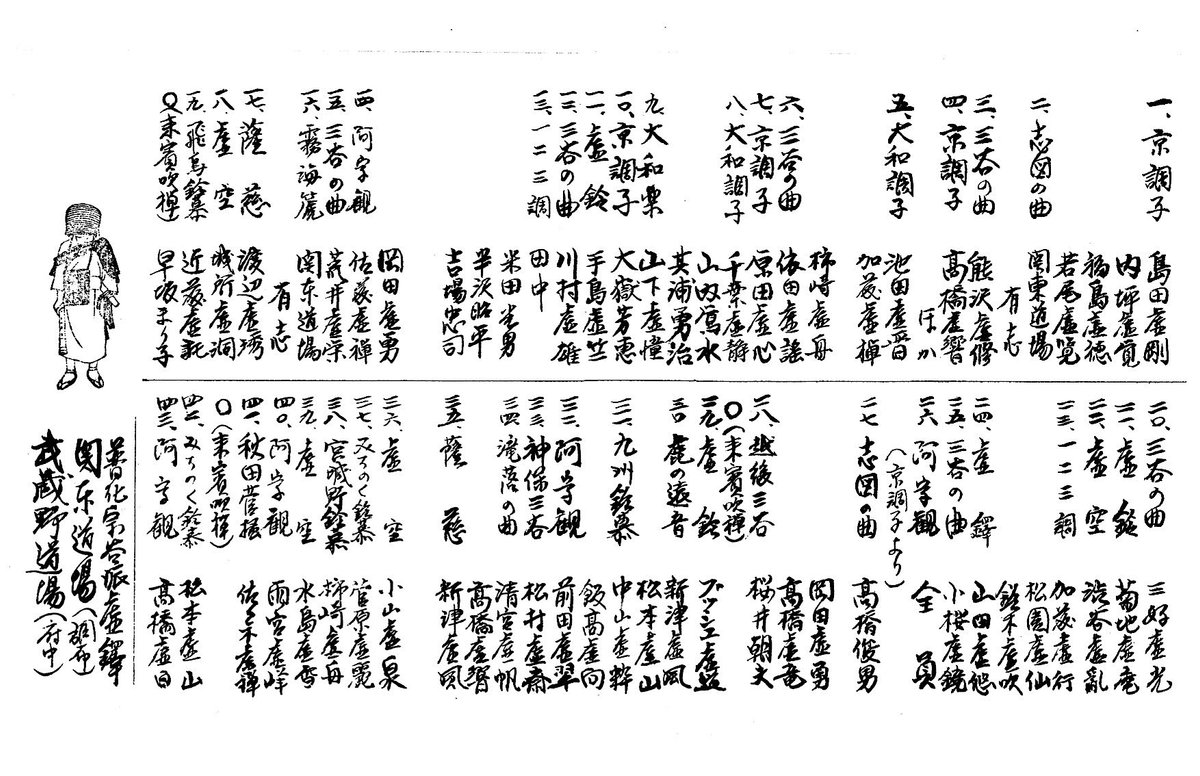 一、京調子 島田虚剛
内坪虚寛
福島虚徳
若尾虚覚
二、志図の曲 関東道場
有志
三、三谷の曲 熊沢虚修
四、京調子 高橋虚響
ほか
五、大和調子 池田虚音
加藤虚禅
柿崎虚舟
六、三谷の曲 依田虚謡
七、京調子 原田虚心
八、大和調子 千葉虚静
山内寫水
其浦勇治
九、大和楽 山下虚憧
一〇、京調子 大嶽芳恵
一一、虚鈴 手島虚竺
一二、三谷の曲 川村虚雄
一三、一二三調 田中
米田光男
半沢昭平
吉場忠司
岡田虚勇
一四、阿字観 佐藤虚禅
一五、三谷の曲 荒井虚栄
一六、霧海箎 関东道場
有志
一七、薩慈 渡辺虚
一八、虚空 城所虚洞
一九、飛鳥鈴慕 近藤虚
〇(来賓吹禅) 早坂
二〇、三谷の曲 三好虚光
二一、虚鈴 菊地虚庵
二二、虚空 渋谷虚乱
二三、一二三調 加藤虚行
松園虚仙
鈴木虚吹
二四、虚鐸 山田虚悠
二五、三谷の曲 小桜虚鏡
二六、阿字観 全員
(京調子より)
二七 志図の曲 高橋俊男
岡田虚勇
高橋虚竜
二八、越後三谷 桜井朝夫
〇(来賓吹禅)
二九、虚鈴 ブッシェ虚
三〇 鹿の遠音 新津虚風
松本虚山
三一、九州鈴慕 中山虚粋
飯高虚向
三二、阿字観 前田虚翠
三三、神保三谷 松村虚齋
三四、滝落の曲 清宮虚帆
高橋虚響
三五、薩慈 新津虚風
三六、虚空 小山虚泉
三七、みちのく鈴慕 菅原虚
三八、宮城野鈴慕 柿崎虚舟
三九、虚空 水島虚雪
四〇、阿字観 雨宮虚峰
四一、秋田菅掻 佐々木虚禅
〇(来賓吹禅)
四二、みちのく鈴慕 松本虚山
四三、阿字観 高橋虚白
普化宗谷派虚鐸
関东道場(調布)
武蔵野道場(府中)